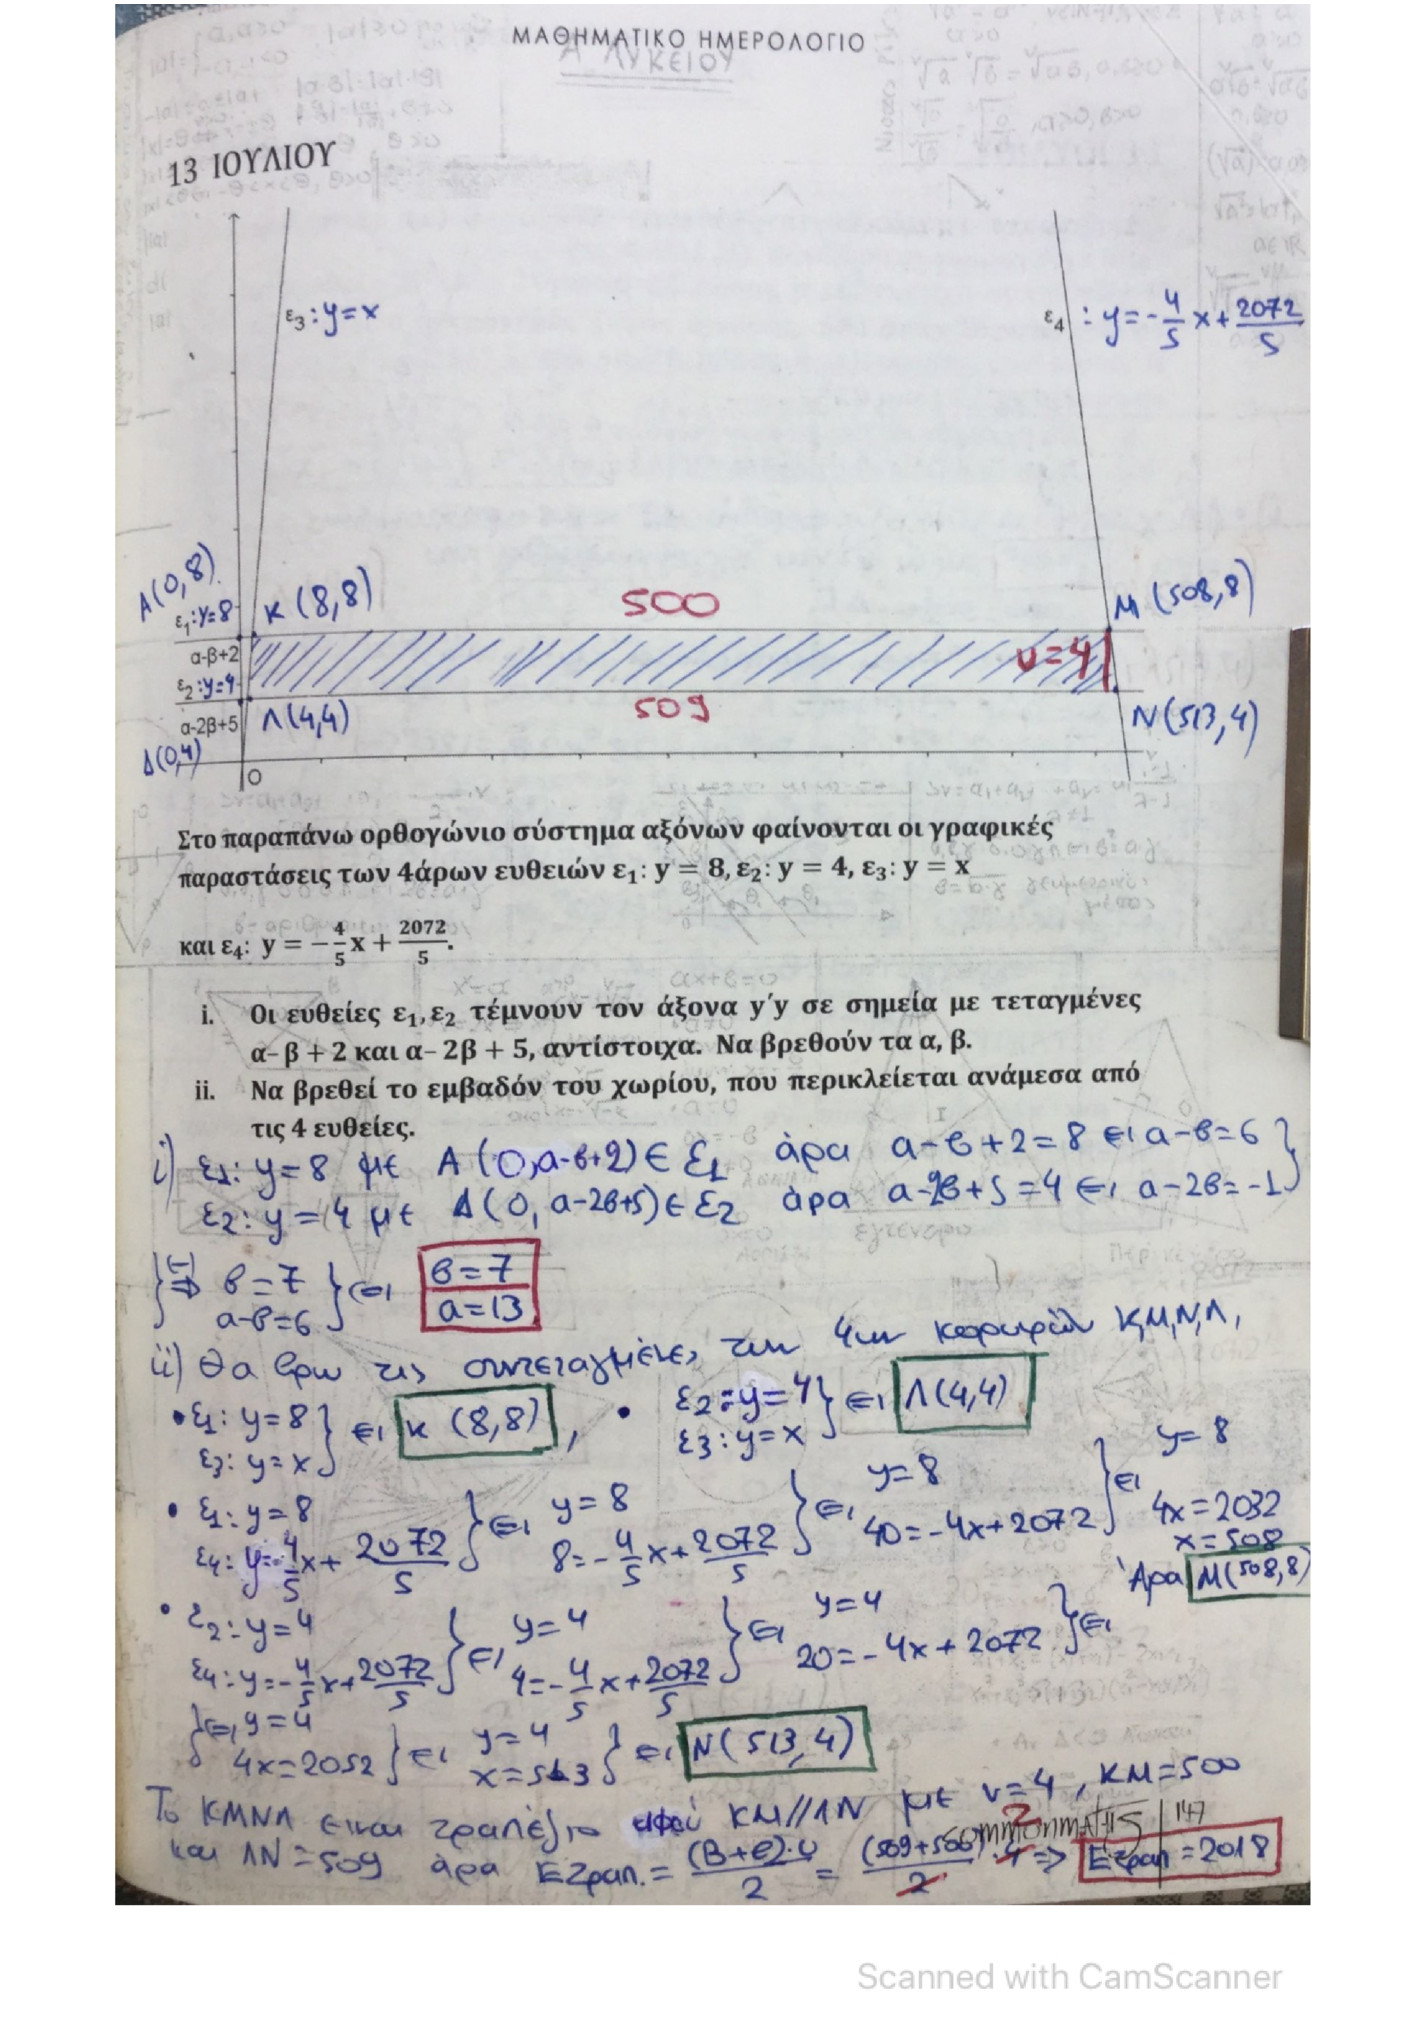 ΜΑΘΗΜΑΤΙΚΟ ΗΜΕΡΟΛΟΓΙΟ
Α ΛΥΚΕΙΟΥ
13 ΙΟΥΛΙΟΥ
ε₃ : y = x
ε₄ : y = -4/5 x + 2072/5
A(0,8)
ε₁ : y = 8
K (8,8)
500
M (508,8)
α-β+2
ε₂ : y = 4
υ = 4
α-2β+5
Λ(4,4)
509
N(513,4)
Δ(0,4)
O
Στο παραπάνω ορθογώνιο σύστημα αξόνων φαίνονται οι γραφικές
παραστάσεις των 4άρων ευθειών ε₁: y = 8, ε₂: y = 4, ε₃: y = x
και ε₄: y = −4/5 x + 2072/5.
i. Οι ευθείες ε₁, ε₂ τέμνουν τον άξονα y′y σε σημεία με τεταγμένες
α– β + 2 και α– 2β + 5, αντίστοιχα. Να βρεθούν τα α, β.
ii. Να βρεθεί το εμβαδόν του χωρίου, που περικλείεται ανάμεσα από
τις 4 ευθείες.
i) ε₁: y = 8 με A (0, α-β+2) ∈ ε₁ άρα α-β+2 = 8 ⇔ α-β = 6 }
ε₂: y = 4 με Δ(0, α-2β+5) ∈ ε₂ άρα α-2β+5 = 4 ⇔ α-2β = -1 }
} (-) ⇒ β = 7 } ⇔ β = 7
α-β = 6 α = 13
ii) Θα βρω τις συντεταγμένες των 4ων κορυφών K, M, N, Λ,
• ε₁: y = 8 } ⇔ K (8,8) , • ε₂: y = 4 } ⇔ Λ(4,4)
ε₃: y = x ε₃: y = x
• ε₁: y = 8 } ⇔ y = 8 } ⇔ y = 8 } ⇔ y = 8
ε₄: y = -4/5 x + 2072/5 8 = -4/5 x + 2072/5 40 = -4x + 2072 4x = 2032
x = 508
Άρα M(508,8)
• ε₂: y = 4 } ⇔ y = 4 } ⇔ y = 4 } ⇔
ε₄: y = -4/5 x + 2072/5 4 = -4/5 x + 2072/5 20 = -4x + 2072
} ⇔ y = 4 } ⇔ y = 4 } ⇔ N(513,4)
4x = 2052 x = 513
Το ΚΜΝΛ είναι τραπέζιο αφού ΚΜ//ΛΝ με υ = 4, ΚΜ = 500
COMMONMATHS | 147
και ΛΝ = 509 άρα Ετραπ. = (Β+β)·υ / 2 = (509+500)/2 · 4 2 ⇒ Ετραπ = 2018
Scanned with CamScanner